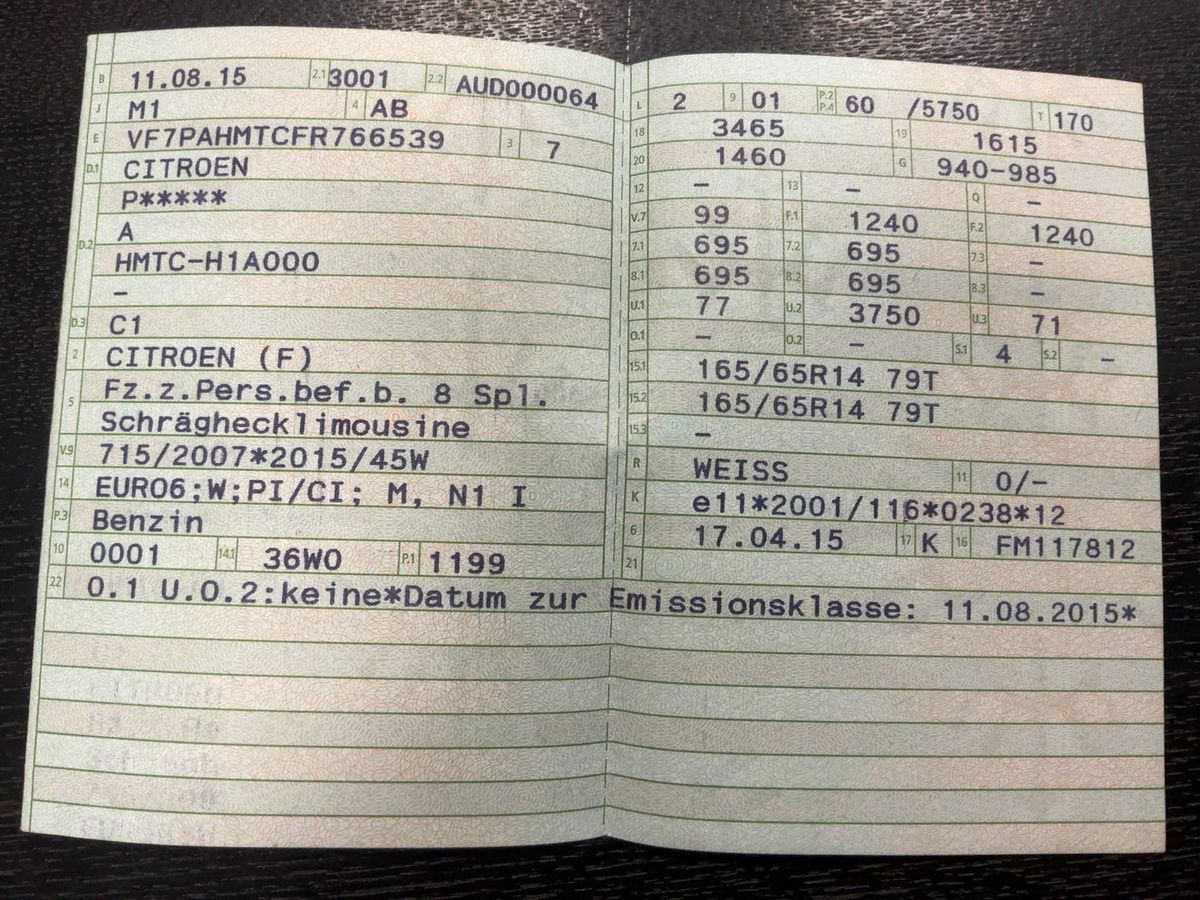 B 11.08.15 2.1 3001 2.2 AUD000064
J M1 4 AB
E VF7PAHMTCFR766539 3 7
D.1 CITROEN
P*****
D.2 A
HMTC-H1A000
–
D.3 C1
2 CITROEN (F)
5 Fz.z.Pers.bef.b. 8 Spl.
Schräghecklimousine
V.9 715/2007*2015/45W
14 EURO6;W;PI/CI; M, N1 I
P.3 Benzin
10 0001 14.1 36W0 P.1 1199
L 2 9 01 P.2 P.4 60 /5750 T 170
18 3465 19 1615
20 1460 G 940-985
12 – 13 – Q –
V.7 99 F.1 1240 F.2 1240
7.1 695 7.2 695 7.3 –
8.1 695 8.2 695 8.3 –
U.1 77 U.2 3750 U.3 71
O.1 – O.2 – S.1 4 S.2 –
15.1 165/65R14 79T
15.2 165/65R14 79T
15.3 –
R WEISS 11 0/–
K e11*2001/116*0238*12
6 17.04.15 17 K 16 FM117812
21
22 O.1 U.O.2:keine*Datum zur Emissionsklasse: 11.08.2015*